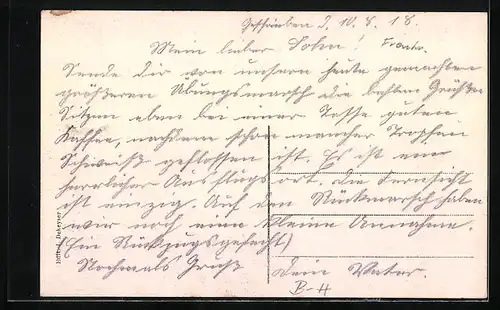 Geschrieben d. 10.8.18.
Mein lieber Sohn! Frankr.
Sende Dir von unserm heute gemachten
größeren Übungsmarsch die besten Grüße
Sitzen eben bei einer Tasse guten
Kaffee, nachdem schon mancher Tropfen
Schweiß geflossen ist. Es ist ein
herrlicher Ausflugsort. Die Fernsicht
ist einzig. Auf dem Rückmarsch haben
wir noch eine kleine Annahme.
(Ein Rückzugsgefecht)
Nochmals Gruß
Dein Vater.
B-H
Dekeyser